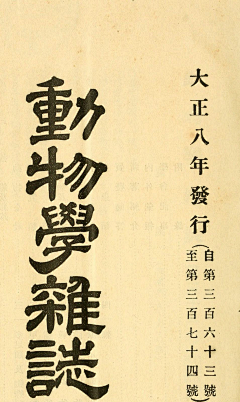 大正八年發行(自第三百六十三號
至第三百七十四號)
動物學雜誌